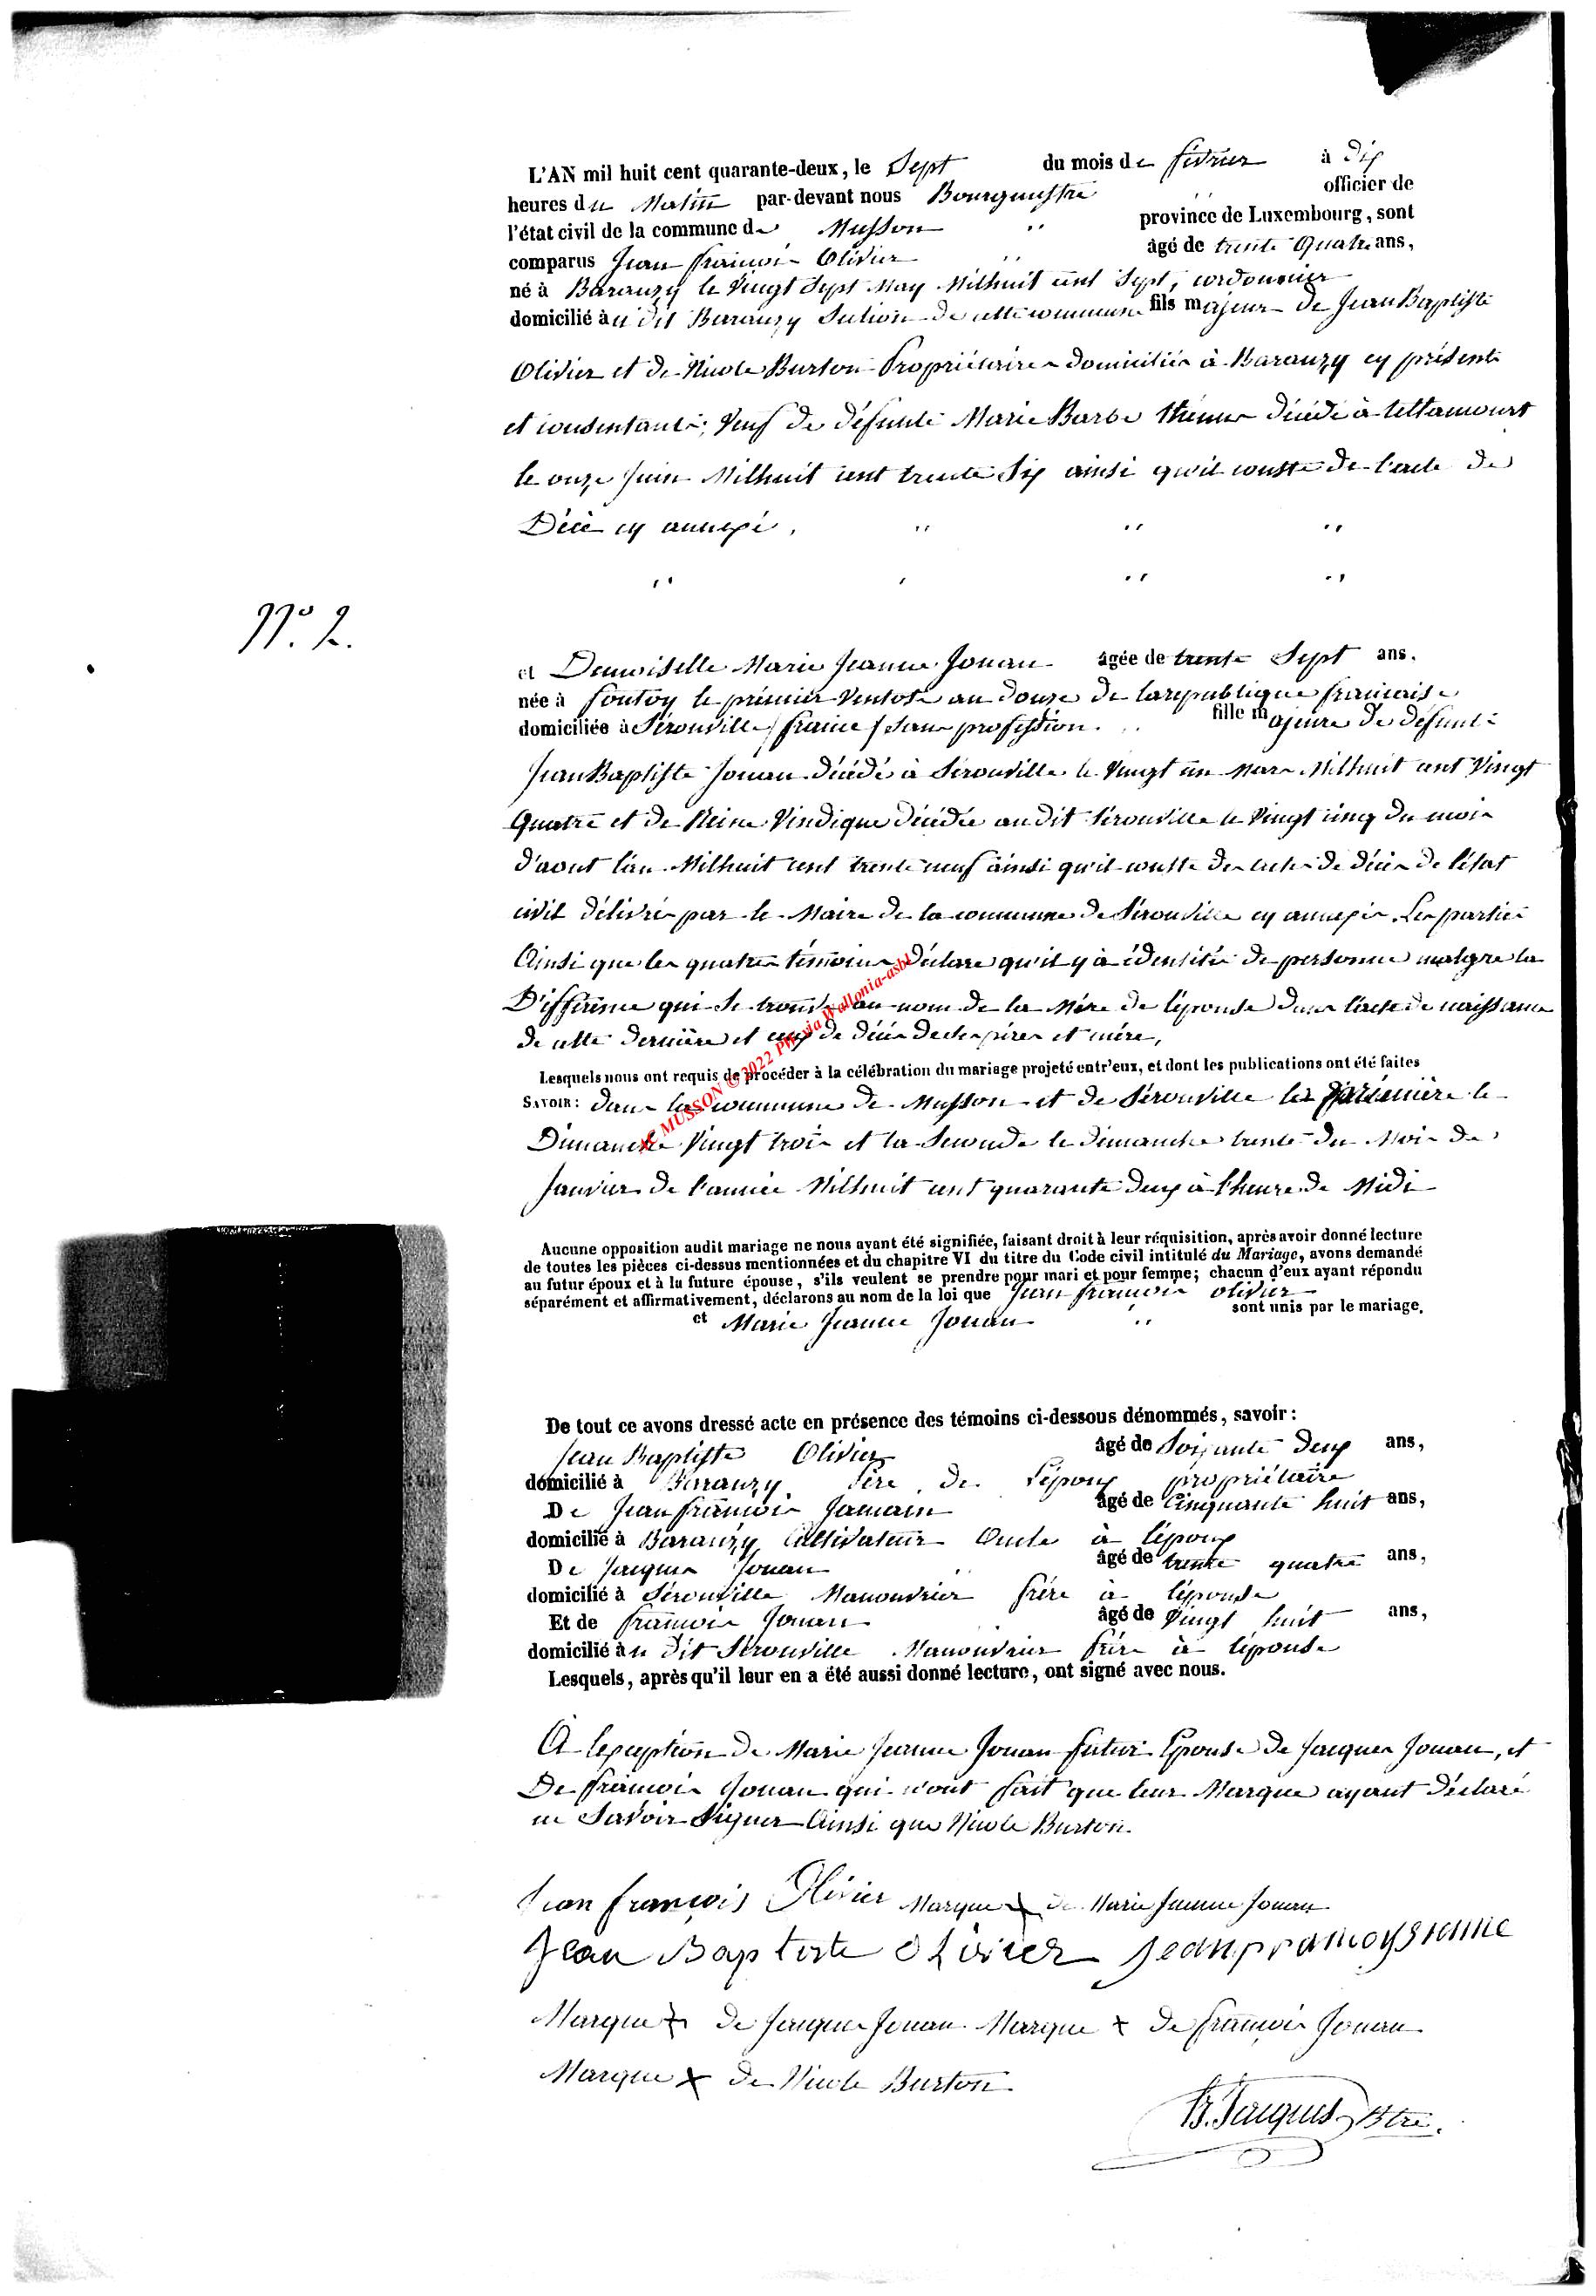 L'AN mil huit cent quarante-deux, le Sept du mois de février à dix
heures du Matin par-devant nous Bourguestre officier de
l'état civil de la commune de Musson " province de Luxembourg, sont
comparus Jean françois Olivier " âgé de trente Quatre ans,
né à Baranzy le Vingt Sept May Milhuit cent Sept, cordonnier
domicilié àu dit Baranzy Section de cette commune fils majeur de Jean Baptiste
Olivier et de Nicole Burton Propriétaires domiciliés à Baranzy cy présents
et consentants; Veuf de défunte Marie Barbe décédé à tellancourt
le onze Juin Milhuit cent trente Six ainsi qu'il conste de l'acte de
Décè cy annexé, " " "
" " " "
N° 2.
et Demoiselle Marie Jeanne Jonan âgée de trente Sept ans.
née à fontoy le prémier Ventose an douze de la republique francaise
domiciliée à Sérouville / fraince / sans profession. fille majeure de défunts
Jean Baptiste Jonan décédé à Sérouville le Vingt un Mars Milhuit cent Vingt
Quatre et de Reine Vindique décédée au dit Sérouville le Vingt cinq du mois
d'aout l'an Milhuit cent trente neuf ainsi qu'il conste des actes de décès de l'état
civil délivrés par le Maire de la commune de Sérouville cy annexés. Les parties
Ainsi que les quatres témoins Déclare qu'il y à identitée de personne malgré la
Différence qui se trouve au nom de la Mère de l'épouse dans l'acte de naissance
de cette dernière et ceux de décès des père et mère,
Lesquels nous ont requis de procéder à la célébration du mariage projeté entr'eux, et dont les publications ont été faites
SAVOIR: dans les commune de Musson et de Sérouville la prémière le
Dimanche Vingt trois et la Seconde le dimanche trente du Mois de
Janvier de l'année Milhuit cent quarante deux à l'heure de Midi
Aucune opposition audit mariage ne nous ayant été signifiée, faisant droit à leur réquisition, après avoir donné lecture
de toutes les pièces ci-dessus mentionnées et du chapitre VI du titre du Code civil intitulé du Mariage, avons demandé
au futur époux et à la future épouse, s'ils veulent se prendre pour mari et pour femme; chacun d'eux ayant répondu
séparément et affirmativement, déclarons au nom de la loi que Jean françois Olivier
et Marie Jeanne Jonan " sont unis par le mariage.
De tout ce avons dressé acte en présence des témoins ci-dessous dénommés, savoir:
Jean Baptiste Olivier âgé de Soixante deux ans,
domicilié à Baranzy Père de l'époux propriétaire
De Jean françois Jamain âgé de Cinquante huit ans,
domicilié à Baranzy Cultivateur Oncle à l'époux
De Jacques Jonan âgé de trente quatre ans,
domicilié à Sérouville Manouvrier frère à l'épouse
Et de françois Jonan âgé de Vingt huit ans,
domicilié àu dit Sérouville Manouvrier frère à l'épouse
Lesquels, après qu'il leur en a été aussi donné lecture, ont signé avec nous.
A l'exception de Marie Jeanne Jonan futur Epouse de Jacques Jonan, et
De françois Jonan qui n'ont fait que leur Marque ayant déclaré
ne Savoir Signer Ainsi que Nicole Burton.
Jean françois Olivier Marque x de Marie Jeanne Jonan
Jean Baptiste Olivier
Marque x de Jacque Jonan Marque x de françois Jonan
Marque x de Nicole Burton
B. Jacques Btre.
AC MUSSON © 2022 Photo Wallonia-asbl